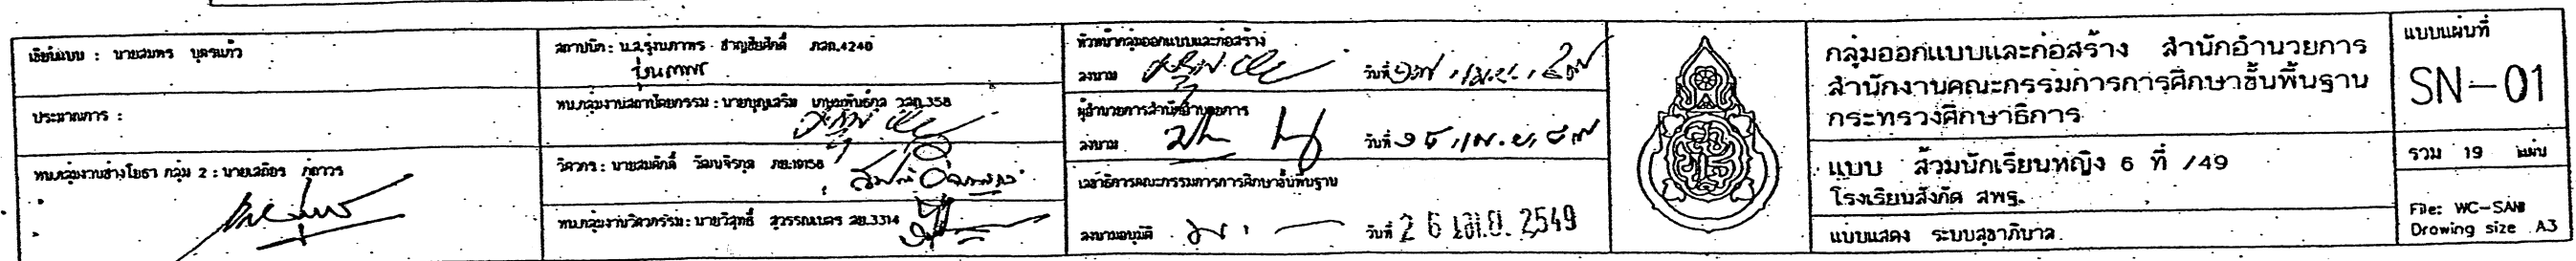 เขียนแบบ : นายสมพร บุตรแก้ว
ประมาณการ :
หน.กลุ่มงานช่างโยธา กลุ่ม 2 : นายเสถียร
สถาปนิก : น.ส.รุ่งนภาพร ชาญชัยศักดิ์ ภสถ.4240
รุ่งนภาพร
หน.กลุ่มงานสถาปัตยกรรม : นายบุญเสริม วสถ.358
วิศวกร : นายสมศักดิ์ วัฒนจิรกุล ภย.19158
หน.กลุ่มงานวิศวกรรม : นายวิสุทธิ์ สุวรรณเนตร สย.3314
หัวหน้ากลุ่มออกแบบและก่อสร้าง
ลงนาม วันที่
ผู้อำนวยการสำนักอำนวยการ
ลงนาม วันที่
เลขาธิการคณะกรรมการการศึกษาขั้นพื้นฐาน
ลงนามอนุมัติ วันที่ 26 เม.ย. 2549
กลุ่มออกแบบและก่อสร้าง สำนักอำนวยการ
สำนักงานคณะกรรมการการศึกษาขั้นพื้นฐาน
กระทรวงศึกษาธิการ
แบบ ส้วมนักเรียนหญิง 6 ที่ /49
โรงเรียนสังกัด สพฐ.
แบบแสดง ระบบสุขาภิบาล
แบบแผ่นที่
SN-01
รวม 19 แผ่น
File: WC-SANI
Drawing size A3